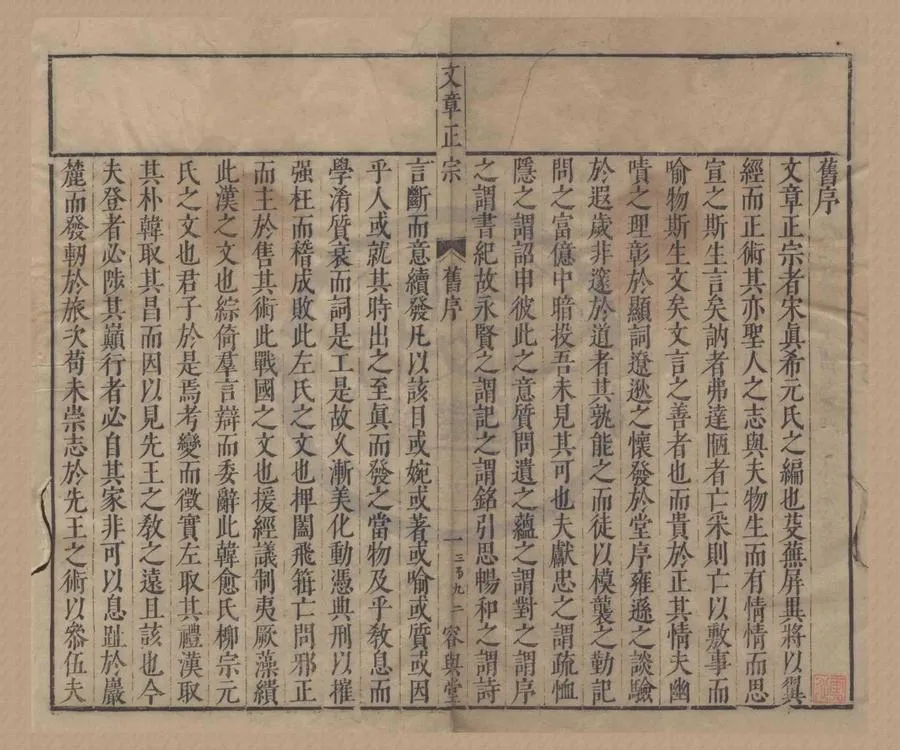 舊序
文章正宗者宋眞希元氏之編也芟蕪屏異將以翼
經而正術其亦聖人之志與夫物生而有情情而思
宣之斯生言矣訥者弗達陋者亡采則亡以敷事而
喻物斯生文矣文言之善者也而貴於正其情夫幽
嘖之理彰於顯詞遼逖之懷發於堂序雍遜之談驗
於遐歲非邃於道者其孰能之而徒以模襲之勤記
問之富億中暗投吾未見其可也夫獻忠之謂疏恤
隱之謂詔申彼此之意質問遺之蘊之謂對之謂序
之謂書紀故永賢之謂記之謂銘引思暢和之謂詩
文章正宗
舊序
一
三百九二
容與堂
言斷而意續發凡以該目或婉或著或喻或質或因
乎人或就其時出之至眞而發之當物及乎敎息而
學淆質衰而詞是工是故久漸美化動憑典刑以摧
强枉而稽成敗此左氏之文也押闔飛箝亡問邪正
而主於售其術此戰國之文也援經議制夷厥藻繢
此漢之文也綜倚羣言辯而委辭此韓愈氏柳宗元
氏之文也君子於是焉考變而徵實左取其禮漢取
其朴韓取其昌而因以見先王之敎之遠且該也今
夫登者必陟其巔行者必自其家非可以息趾於巖
麓而發軔於旅次苟未崇志於先王之術以參伍夫